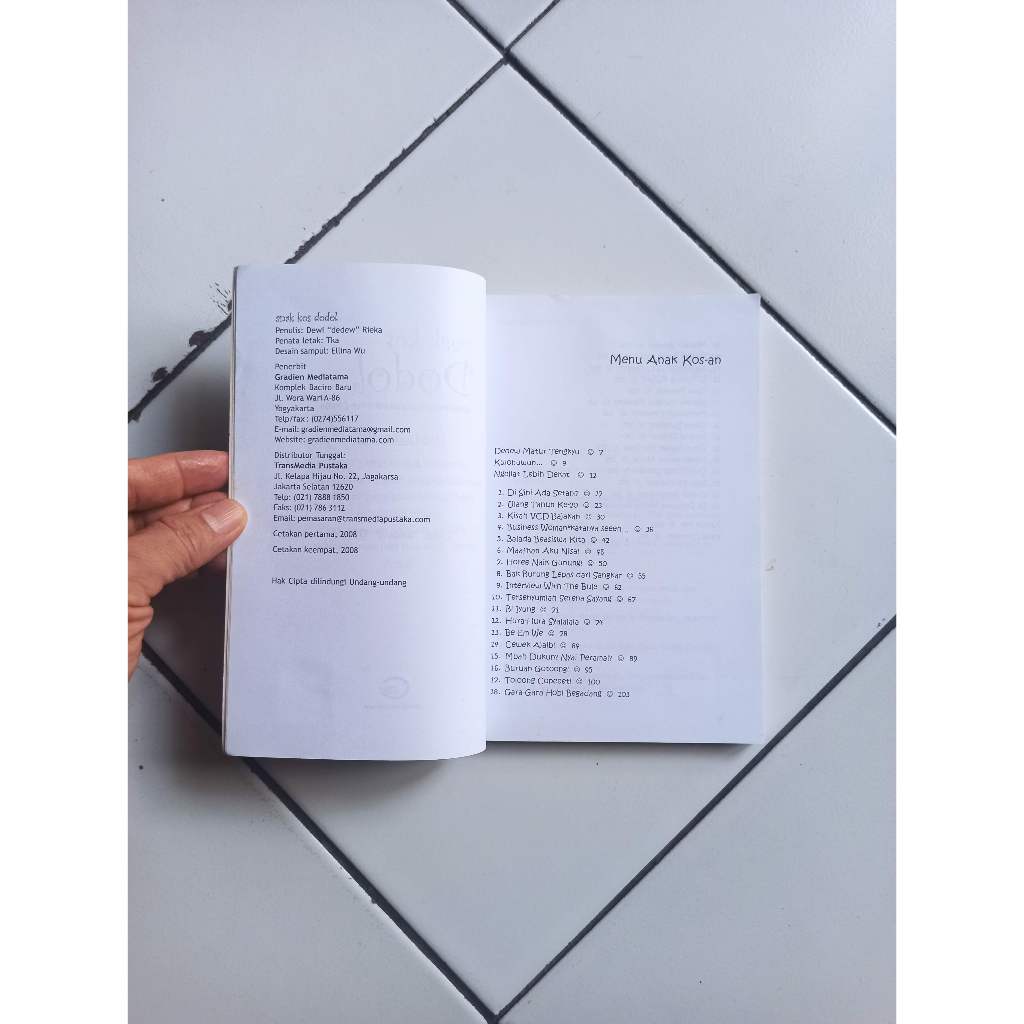 anak kos dodol
Penulis: Dewi "dedew" Rieka
Penata letak: Tka
Desain sampul: Ellina Wu
Penerbit
Gradien Mediatama
Komplek Baciro Baru
Jl. Wora Wari A-86
Yogyakarta
Telp/fax: (0274)556117
E-mail: gradienmediatama@gmail.com
Website: gradienmediatama.com
Distributor Tunggal:
TransMedia Pustaka
Jl. Kelapa Hijau No. 22, Jagakarsa
Jakarta Selatan 12620
Telp: (021) 7888 1850
Faks: (021) 786 3112
Email: pemasaran@transmediapustaka.com
Cetakan pertama, 2008
Cetakan keempat, 2008
Hak Cipta dilindungi Undang-undang
Menu Anak Kos-an
Dedew Matur Tengkyu ☺ 7
Kulonuwun... ☺ 9
Ngeliat Lebih Dekat ☺ 12
1. Di Sini Ada Setan? ☺ 17
2. Ulang Tahun Ke-20 ☺ 23
3. Kisah VCD Bajakan ☺ 30
4. Business Woman*katanya seeeh ☺ 36
5. Balada Beasiswa Kita ☺ 42
6. Maafkan Aku Nisa! ☺ 46
7. Horee Naik Gunung! ☺ 50
8. Bak Burung Lepas dari Sangkar ☺ 55
9. Interview With The Bule ☺ 62
10. Tersenyumlah Serena Sayang ☺ 67
11. Bi Iyung ☺ 71
12. Huru-Hura Syalalala ☺ 74
13. Be Em We ☺ 78
14. Cewek Ajaib! ☺ 84
15. Mbah Dukun? Nyai Peramal? ☺ 89
16. Buruan Gotong! ☺ 95
17. Tolooong Copeeet! ☺ 100
18. Gara-Gara Hobi Begadang ☺ 103
Dodol